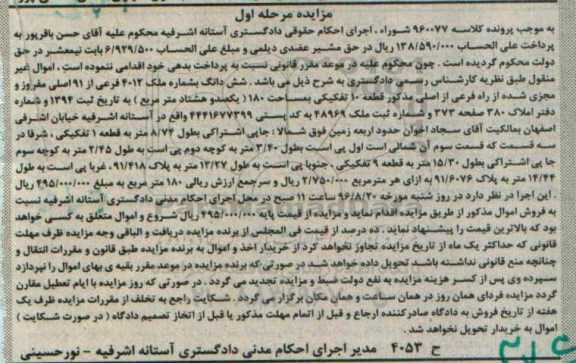 مزایده مرحله اول
به موجب پرونده کلاسه ۹۶۰۰۷۷ شوراء ، اجرای احکام حقوقی دادگستری آستانه اشرفیه محکوم علیه آقای حسن باقرپور به
پرداخت علی الحساب ۱۳۸/۵۹۰/۰۰۰ ریال در حق مشیر عضدی دیلمی و مبلغ علی الحساب ۶/۹۲۹/۵۰۰ بابت نیمعشر در حق
دولت محکوم گردیده است . چون محکوم علیه در موعد مقرر قانونی نسبت به پرداخت بدهی خود اقدامی ننموده است . اموال غیر
منقول طبق نظریه کارشناس رسمی دادگستری به شرح ذیل می باشد . شش دانگ بشماره ملک ۴۰۱۲ فرعی از ۹۱ اصلی مفروز و
مجزی شده از راه فرعی از اصلی مذکور قطعه ۱۰ تفکیکی بمساحت ۱۸۰ ( یکصدو هشتاد متر مربع ) به تاریخ ثبت ۱۳۹۴ و شماره
دفتر املاک ۳۸۰ صفحه ۳۷۳ و شماره ثبت ملک ۴۸۹۶۹ به کد پستی ۴۴۴۱۶۷۷۳۹۹ واقع در آستانه اشرفیه خیابان اشرفی
اصفهان بمالکیت آقای سجاد اخوان حدود اربعه زمین فوق شمالا : جایی اشتراکی بطول ۸/۷۴ متر به قطعه ۱ تفکیکی ، شرقا در
سه قسمت که قسمت سوم آن شمالی است اول پی است بطول ۳/۴۰ متر به کوچه دوم پی است به طول ۲/۴۵ متر به کوچه سوم
جا پی اشتراکی بطول ۱۵/۳۰ متر به قطعه ۹ تفکیکی ، جنوبا پی است به طول ۱۲/۲۷ متر به پلاک ۹۱/۴۱۸ ، غربا پی است به طول
۱۴/۴۴ متر به پلاک ۹۱/۶۰۷۶ به ازای هر مترمربع ۲/۷۵۰/۰۰۰ ریال و سرجمع ارزش ریالی ۱۸۰ متر مربع به مبلغ ۴۹۵/۰۰۰/۰۰۰ ریال
. این اجرا در نظر دارد در روز شنبه مورخه ۹۶/۸/۲۰ ساعت ۱۱ صبح در محل اجرای احکام مدنی دادگستری آستانه اشرفیه نسبت
به فروش اموال مذکور از طریق مزایده اقدام نماید و مزایده از قیمت پایه ۴۹۵/۰۰۰/۰۰۰ ریال شروع و اموال متعلق به کسی خواهد
بود که بالاترین قیمت را پیشنهاد نماید . ده درصد از قیمت فی المجلس از برنده مزایده دریافت و الباقی وجه مزایده ظرف مهلت
قانونی که حداکثر یک ماه از تاریخ مزایده تجاوز نخواهد کرد از خریدار اخذ و اموال به برنده مزایده طبق قانون و مقررات انتقال و
چنانچه منع قانونی نداشته باشد تحویل داده خواهد شد . در صورتی که برنده مزایده در موعد مقرر بقیه ی بهای اموال را نپردازد
سپرده وی پس از کسر هزینه مزایده به نفع دولت ضبط و مزایده تجدید می گردد . در صورتی که روز مزایده با ایام تعطیل مقارن
گردد مزایده فردای همان روز در همان ساعت و همان مکان برگزار می گردد . شکایت راجع به تخلف از مقررات مزایده ظرف یک
هفته از تاریخ فروش به دادگاه صادرکننده ارجاع و قبل از اتمام مهلت مذکور یا قبل از اتخاذ تصمیم دادگاه ( در صورت شکایت )
اموال به خریدار تحویل نخواهد شد .
ح ۴۰۵۳ مدیر اجرای احکام مدنی دادگستری آستانه اشرفیه - نورحسینی